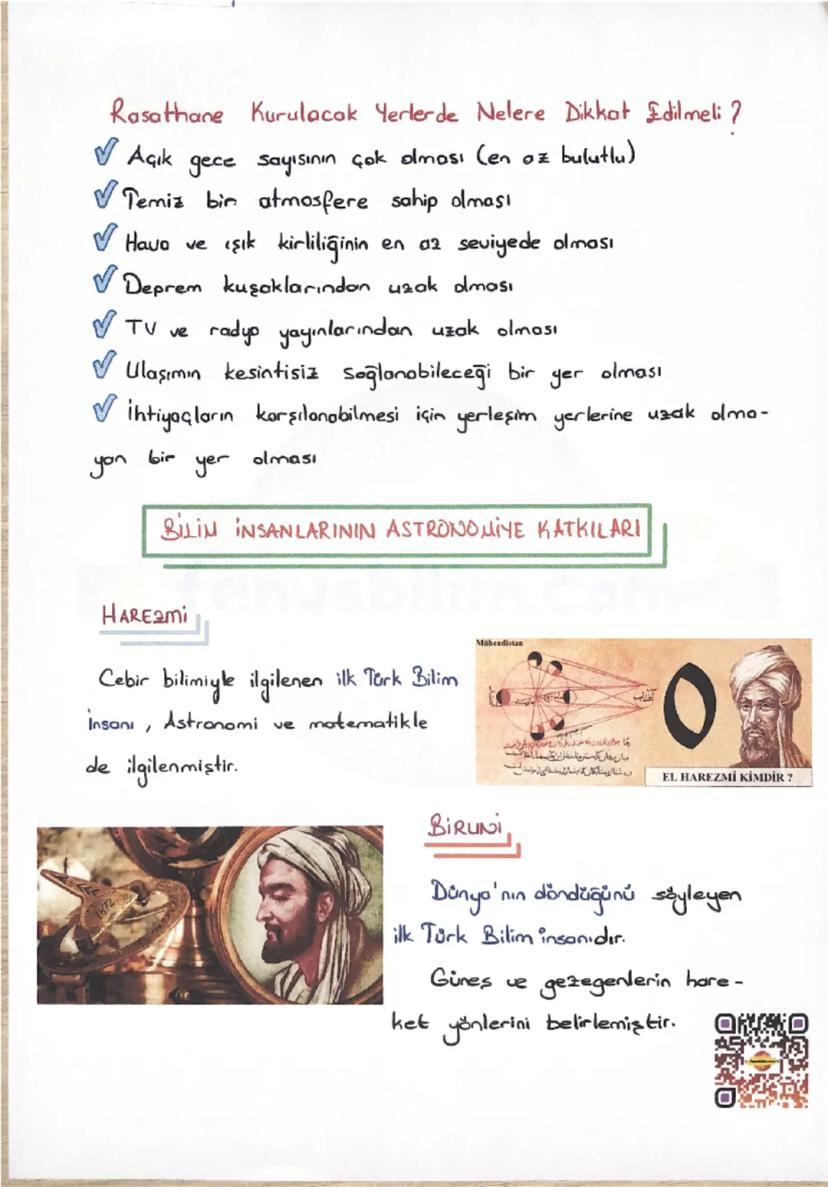 Rasathane Kurulacak Yerlerde Nelere Dikkat Edilmeli ?
Açık gece sayısının çok olması (en az bulutlu)
Temiz bir atmosfere sahip olması
Hava ve ışık kirliliğinin en az seviyede olması
Deprem kuşaklarından uzak olması
TV ve radyo yayınlarından uzak olması
Ulaşımın kesintisiz sağlanabileceği bir yer olması
İhtiyaçların karşılanabilmesi için yerleşim yerlerine uzak olma-
yan bir yer olması
BİLİM İNSANLARININ ASTRONOMİYE KATKILARI
HAREZMİ
Cebir bilimiyle ilgilenen ilk Türk Bilim
İnsanı, Astronomi ve matematikle
de ilgilenmiştir.
Mühendistan
EL HAREZMİ KİMDİR ?
1872
BİRUNİ
Dünya'nın döndüğünü söyleyen
ilk Türk Bilim insanıdır.
Güneş ve gezegenlerin hare-
ket yönlerini belirlemiştir.